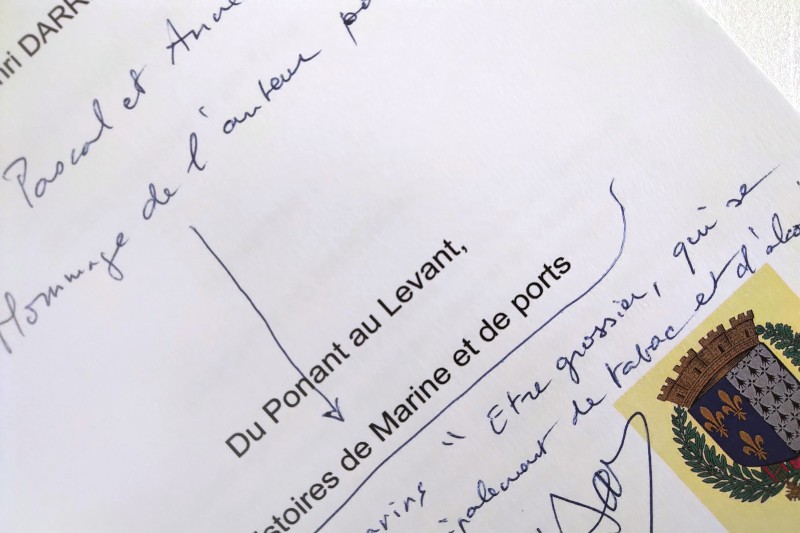 nri DARR
Pascal et Anne
Hommage de l'auteur
Du Ponant au Levant,
istoires de Marine et de ports
arins " Etre grossier, qui se
palement de tabac et d'alco